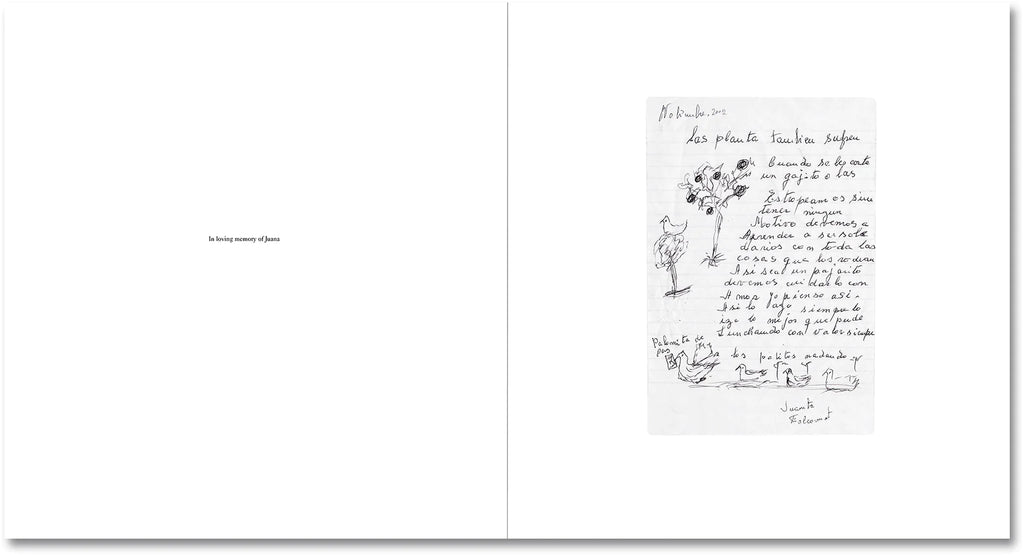 In loving memory of Juana
Nobiembre. 2002
Las planta tambien sufren
Cuando se les corte
un gajito o las
Estropeamos sin
tener ningun
Motivo devemos a
Aprender a ser sole
darios con toda las
cosas que los rodean
Asi sea un pajarito
devemos cuidarlo con
Amor yo pienso asi.
Asi lo ago siempre lo
ize lo mejor que pude
Lunchando con valor siempre
Palomita de
pas
los patitos nadando
Juanita